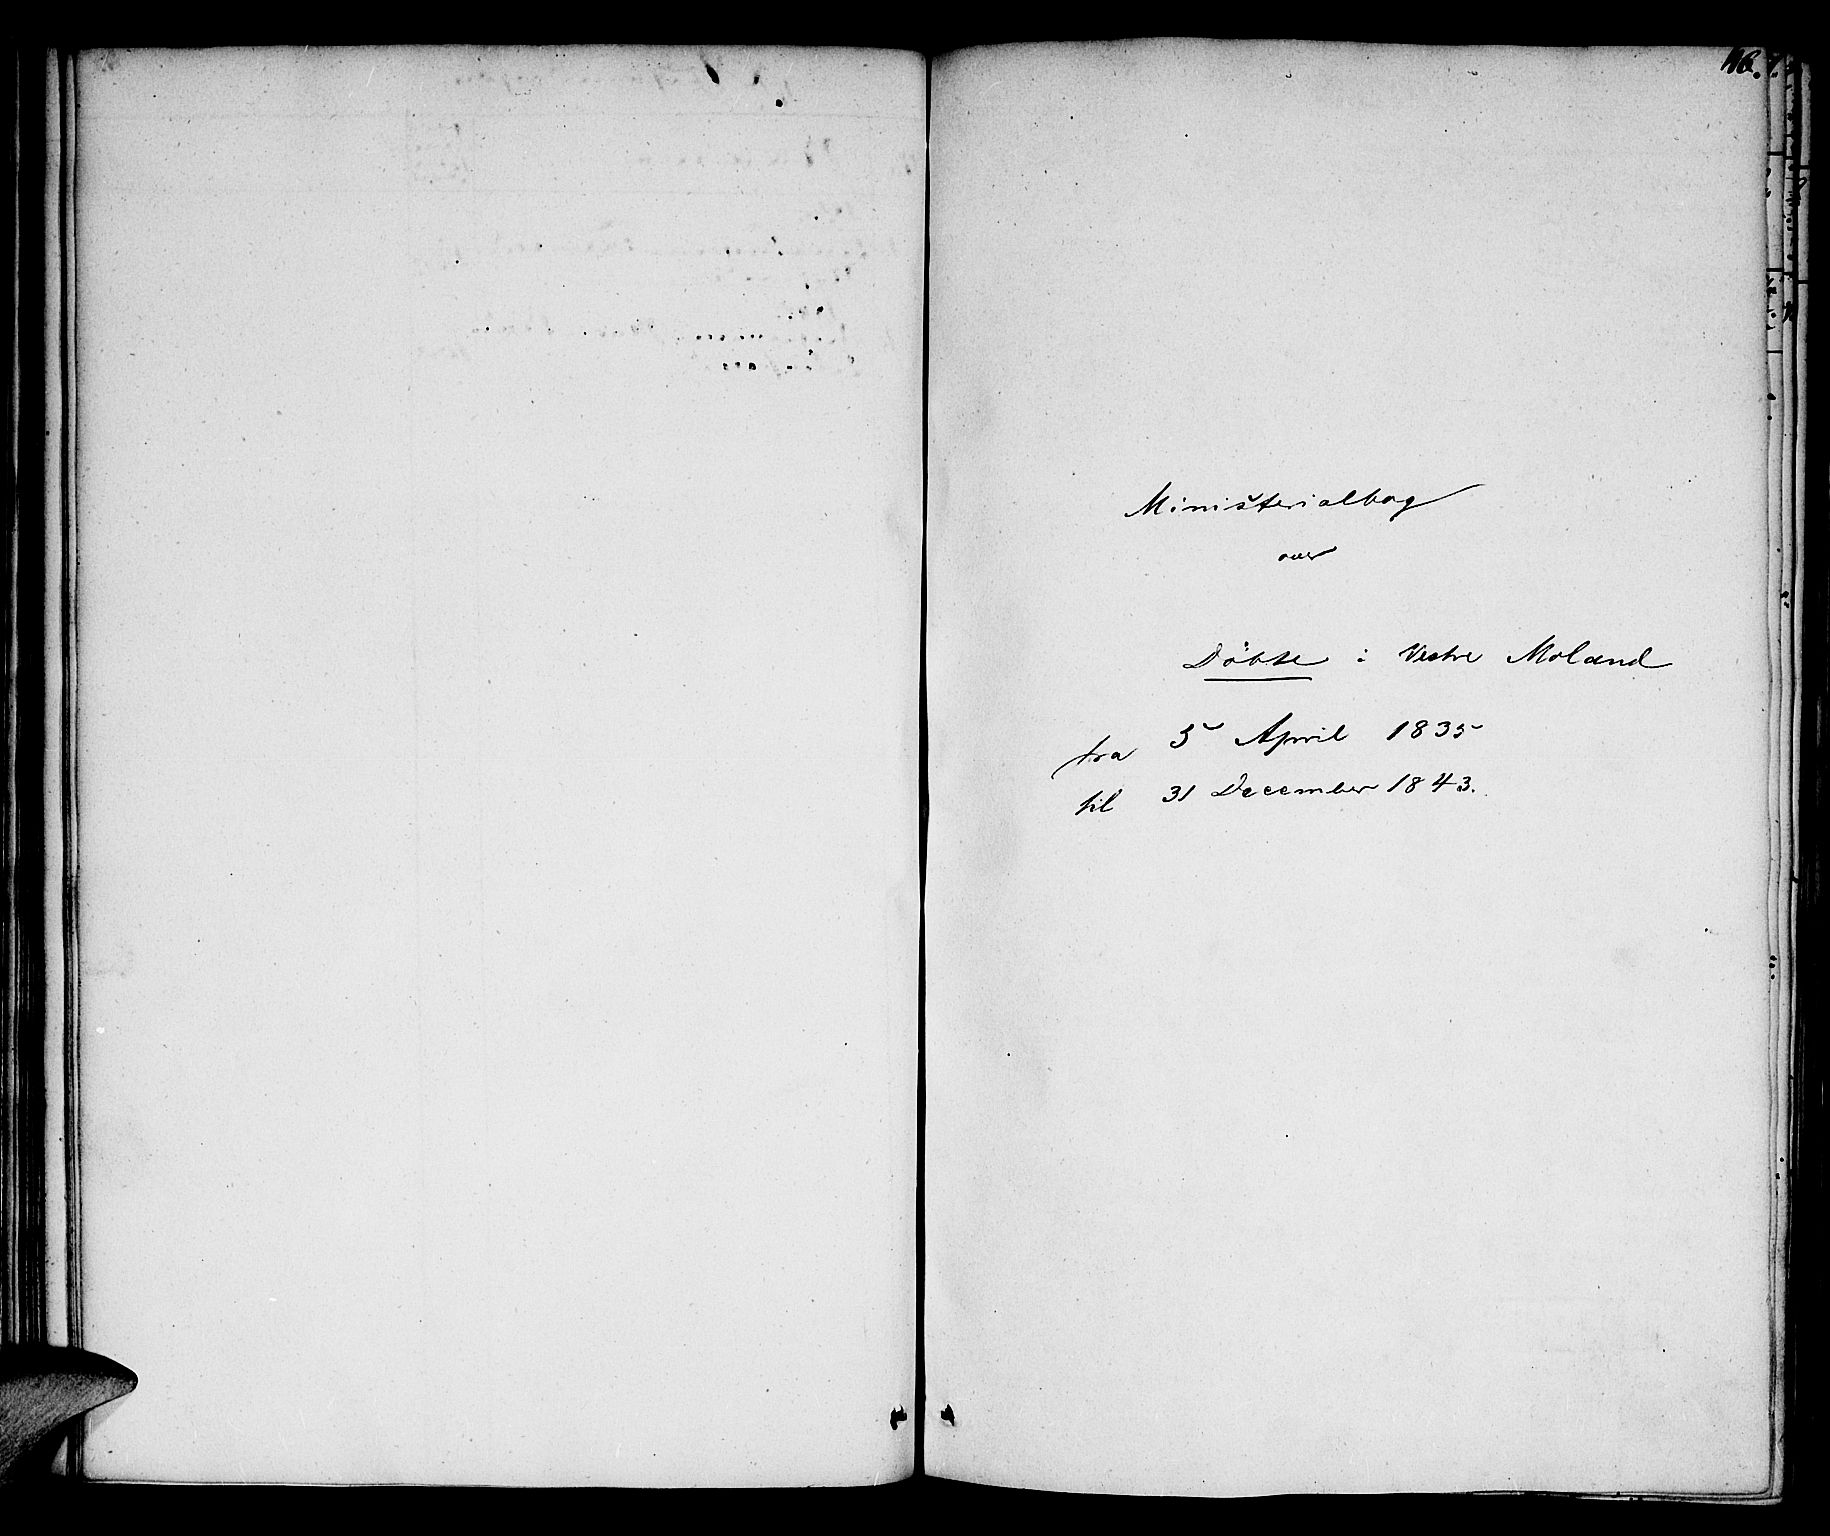 Ministerialbog
over
Döbte i Vestre Moland
fra 5 April 1835
til 31 December 1843.